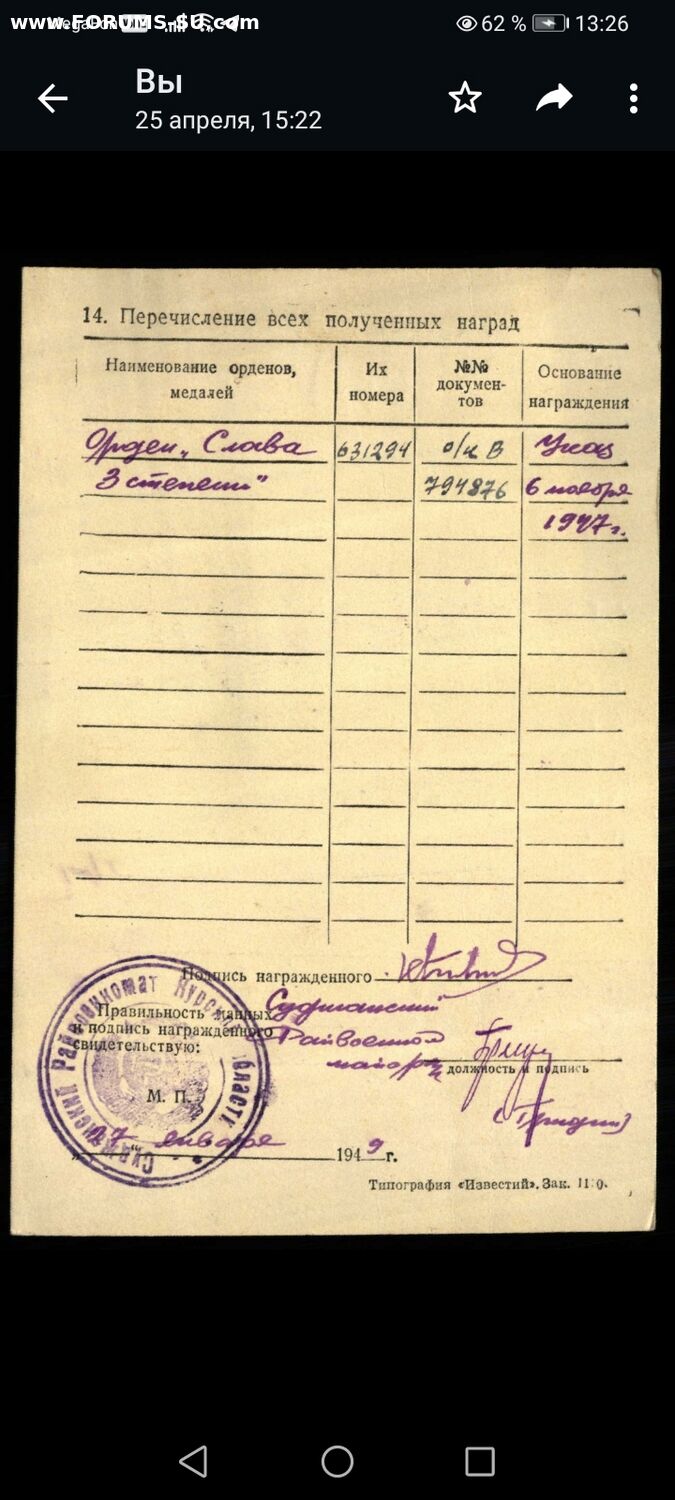 www.FORUMS-SU.com
62 % 13:26
Вы
25 апреля, 15:22
14. Перечисление всех полученных наград
Наименование орденов, медалей
Их номера
№№ докумен-тов
Основание награждения
Орден „Слава 631294 о/к В Указ
3 степени" 794876 6 ноября
1947 г.
Подпись награжденного
Правильность данных Суджанский
и подпись награжденного Райвоенком
свидетельствую: майор
должность и подпись
М. П.
Суджанский Райвоенкомат Курской области
27 января 1949 г.
Типография «Известий». Зак.